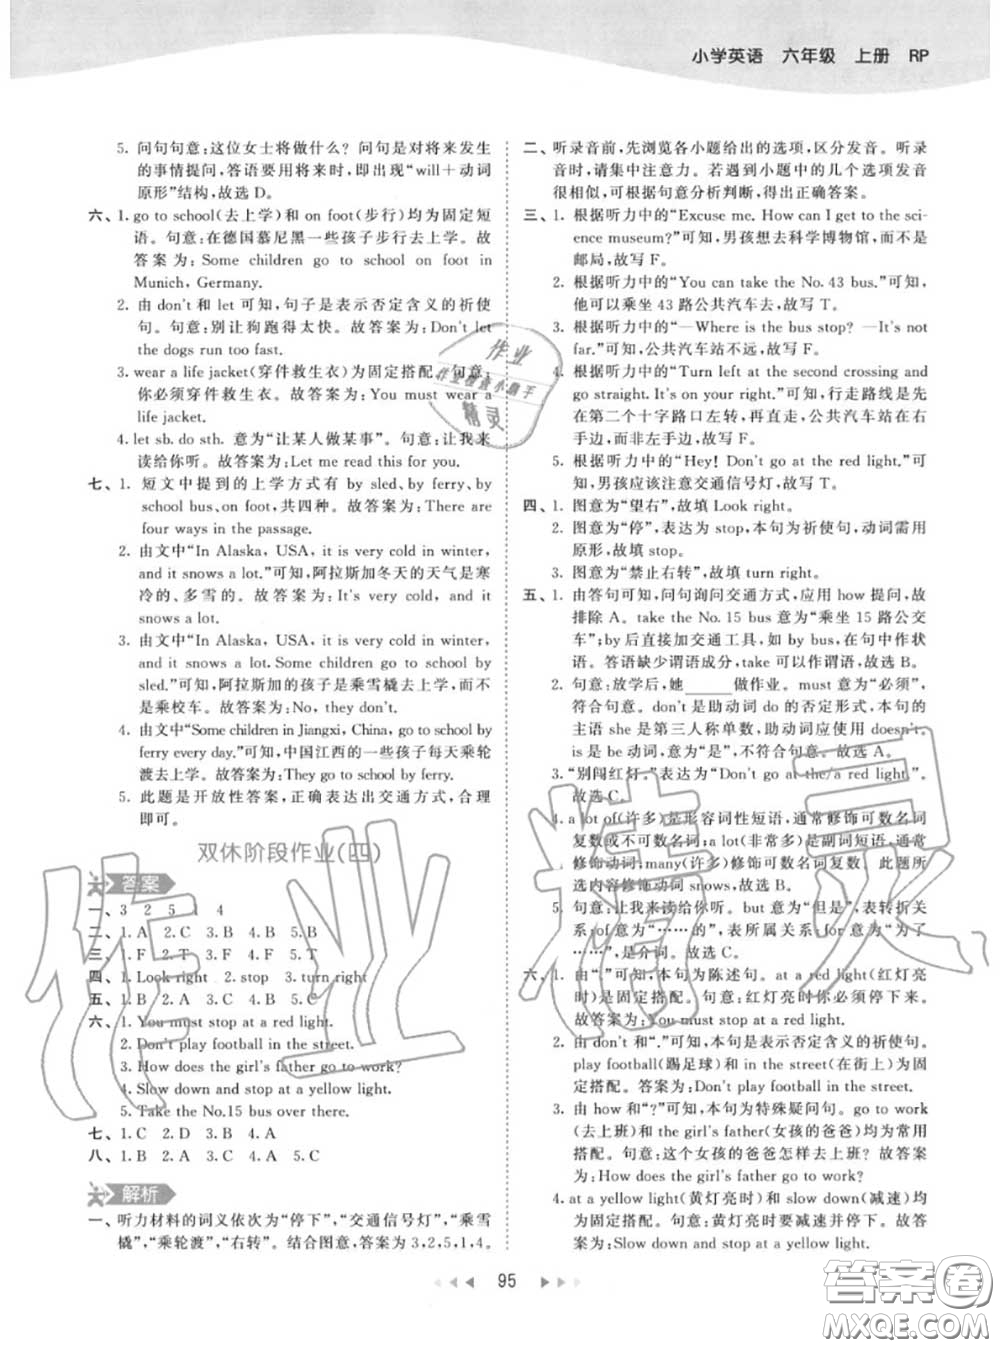 小学英语 六年级 上册 RP
5. 问句句意:这位女士将做什么? 问句是对将来发生
的事情提问,答语要用将来时,即出现“will+动词
原形”结构,故选 D。
六、1. go to school(去上学)和 on foot(步行)均为固定短
语。句意:在德国慕尼黑一些孩子步行去上学。故
答案为:Some children go to school on foot in
Munich, Germany.
2. 由 don't 和 let 可知,句子是表示否定含义的祈使
句。句意:别让狗跑得太快。故答案为:Don't let
the dogs run too fast.
3. wear a life jacket(穿件救生衣)为固定搭配。句意:
你必须穿件救生衣。故答案为:You must wear a
life jacket.
4. let sb. do sth. 意为“让某人做某事”。句意:让我来
读给你听。故答案为:Let me read this for you.
七、1. 短文中提到的上学方式有 by sled、by ferry、by
school bus、on foot,共四种。故答案为:There are
four ways in the passage.
2. 由文中“In Alaska, USA, it is very cold in winter,
and it snows a lot.”可知,阿拉斯加冬天的天气是寒
冷的、多雪的。故答案为:It's very cold, and it
snows a lot.
3. 由文中“In Alaska, USA, it is very cold in winter,
and it snows a lot. Some children go to school by
sled.”可知,阿拉斯加的孩子是乘雪橇去上学,而不
是乘校车。故答案为:No, they don't.
4. 由文中“Some children in Jiangxi, China, go to school by
ferry every day.”可知,中国江西的一些孩子每天乘轮
渡去上学。故答案为:They go to school by ferry.
5. 此题是开放性答案,正确表达出交通方式,合理
即可。
双休阶段作业(四)
答案
一、3 2 5 1 4
二、1. A 2. C 3. B 4. B 5. B
三、1. F 2. T 3. F 4. F 5. T
四、1. Look right 2. stop 3. turn right
五、1. B 2. A 3. C 4. B 5. C
六、1. You must stop at a red light.
2. Don't play football in the street.
3. How does the girl's father go to work?
4. Slow down and stop at a yellow light.
5. Take the No.15 bus over there.
七、1. C 2. D 3. B 4. A
八、1. B 2. A 3. B 4. A 5. C
解析
一、听力材料的词义依次为“停下”,“交通信号灯”,“乘雪
橇”,“乘轮渡”,“右转”。结合图意,答案为 3,2,5,1,4。
二、听录音前,先浏览各小题给出的选项,区分发音。听录
音时,请集中注意力。若遇到小题中的几个选项发音
很相似,可根据句意分析判断,得出正确答案。
三、1. 根据听力中的“Excuse me. How can I get to the sci-
ence museum?”可知,男孩想去科学博物馆,而不是
邮局,故写 F。
2. 根据听力中的“You can take the No. 43 bus.”可知,
他可以乘坐 43 路公共汽车去,故写 T。
3. 根据听力中的“—Where is the bus stop? —It's not
far.”可知,公共汽车站不远,故写 F。
4. 根据听力中的“Turn left at the second crossing and
go straight. It's on your right.”可知,行走路线是先
在第二个十字路口左转,再直走,公共汽车站在右
手边,而非左手边,故写 F。
5. 根据听力中的“Hey! Don't go at the red light.”可
知,男孩应该注意交通信号灯,故写 T。
四、1. 图意为“望右”,故填 Look right。
2. 图意为“停”,表达为 stop,本句为祈使句,动词需用
原形,故填 stop。
3. 图意为“禁止右转”,故填 turn right。
五、1. 由答句可知,问句询问交通方式,应用 how 提问,故
排除 A。take the No. 15 bus 意为“乘坐 15 路公交
车”;by后直接加交通工具,如 by bus,在句中作状
语。答语缺少谓语成分,take 可以作谓语,故选 B。
2. 句意:放学后,她____做作业。must 意为“必须”,
符合句意。don't 是助动词 do 的否定形式,本句的
主语 she 是第三人称单数,助动词应使用 doesn't。
is 是 be 动词,意为“是”,不符合句意。故选 A。
3. “别闯红灯。”表达为“Don't go at the/a red light.”。
故选 C。
4. a lot of(许多)是形容词性短语,通常修饰可数名词
复数或不可数名词;a lot(非常多)是副词短语,通常
修饰动词;many(许多)修饰可数名词复数。此题所
选内容修饰动词 snows,故选 B。
5. 句意:让我来读给你听。but 意为“但是”,表转折关
系;of 意为“……的”,表所属关系;for 意为“为了
……”,是介词。故选 C。
六、1. 由“.”可知,本句为陈述句。at a red light(红灯亮
时)是固定搭配。句意:红灯亮时你必须停下来。
故答案为:You must stop at a red light.
2. 由 don't 和“.”可知,本句是表示否定含义的祈使句。
play football(踢足球)和 in the street(在街上)为固
定搭配。答案为:Don't play football in the street.
3. 由 how 和“?”可知,本句为特殊疑问句。go to work
(去上班)和 the girl's father(女孩的爸爸)均为常用
搭配。句意:这个女孩的爸爸怎样去上班? 故答案
为:How does the girl's father go to work?
4. at a yellow light(黄灯亮时)和 slow down(减速)均
为固定搭配。句意:黄灯亮时要减速并停下。故答
案为:Slow down and stop at a yellow light.
95
作业
作业检查小助手
精灵
作业精灵
答案卷
MXQE.COM